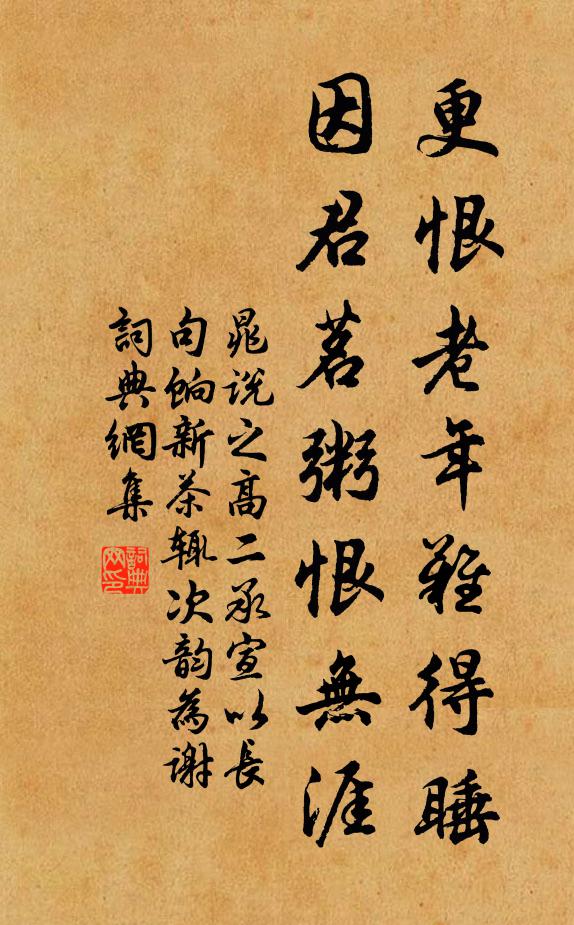 更恨老年難得睡
因君茗粥恨無涯
晁說之高二承宣以長
句餉新茶輒次韵為謝
詞典網集
詞典網印